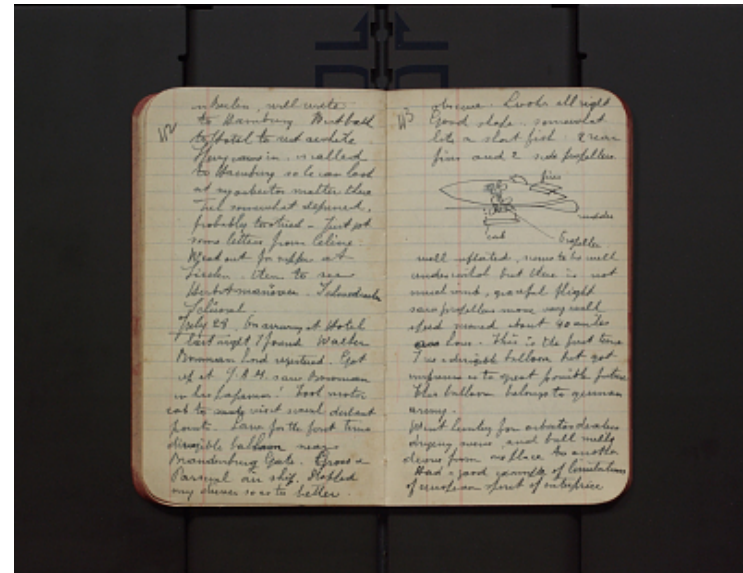 112
in Berlin, will write
to Hamburg. Went back
to Hotel to rest awhile
came in. is called
to Hamburg so he can look
at my asbestos matter there
Feel somewhat depressed,
probably too tired - Just got
some letters from Celine.
Went out for supper at
then to see
July 28. On arriving at Hotel
last night I found Walker
Bowman had registered. Got
up at 7 A.M. saw Bowman
in his pajamas! Took motor
cab to visit several distant
points. Saw for the first time
dirigible balloon near
Brandenburg Gate. Gross a
Parseval air ship. Stopped
my driver so as to better
113
observe. Looks all right
Good shape. somewhat
like a short fish. 2 rear
fins and 2 side propellers.
fins
rudder
cab
Propeller
well inflated, seems to be well
under control but there is not
much wind, graceful flight
propellers move very well
speed around about 40 miles
an hour. This is the first time
I see a dirigible balloon but got
impressed as to great possible future
This balloon belongs to german
army.
Went hunting for asbestos dealers
drying ovens, and ball mills
drove from one place to another
Had a good example of limitations
of european spirit of enterprise